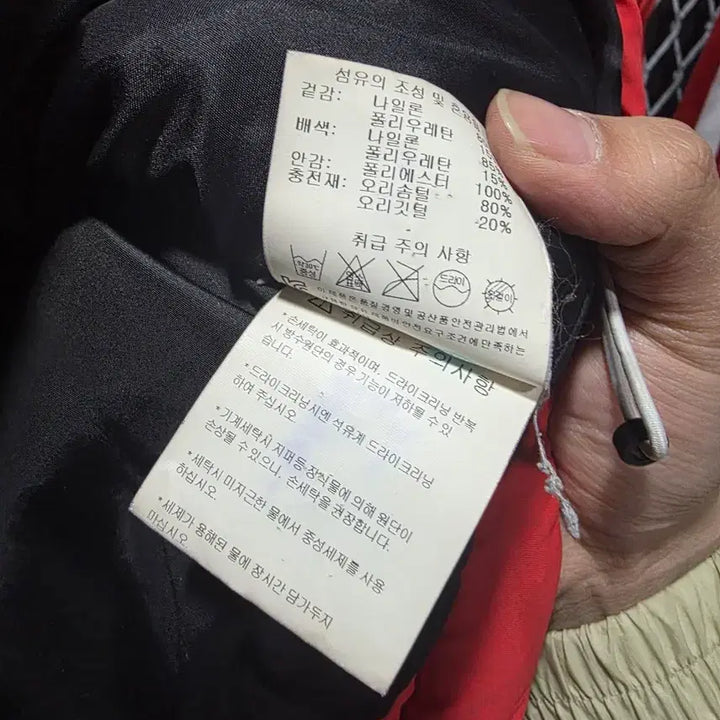 섬유의 조성 및
겉감: 나일론
폴리우레탄
배색: 나일론
폴리우레탄 15%
안감: 폴리에스터 100%
충전재: 오리솜털 80%
오리깃털 20%
취급 주의 사항
약30℃
중성
드라이
옷걸이
이 제품은 품질경영 및 공산품안전관리법에서
안전요구조건에 만족하는
취급상 주의사항
*손세탁이 효과적이며, 드라이크리닝 반복
시 방수원단의 경우 기능이 저하될 수 있
습니다.
*드라이크리닝시엔 석유계 드라이크리닝
하여 주십시오
*기계세탁시 지퍼등 장식물에 의해 원단이
손상될 수 있으니, 손세탁을 권장합니다.
*세탁시 미지근한 물에서 중성세제를 사용
하십시오.
*세제가 용해된 물에 장시간 담가두지
마십시오